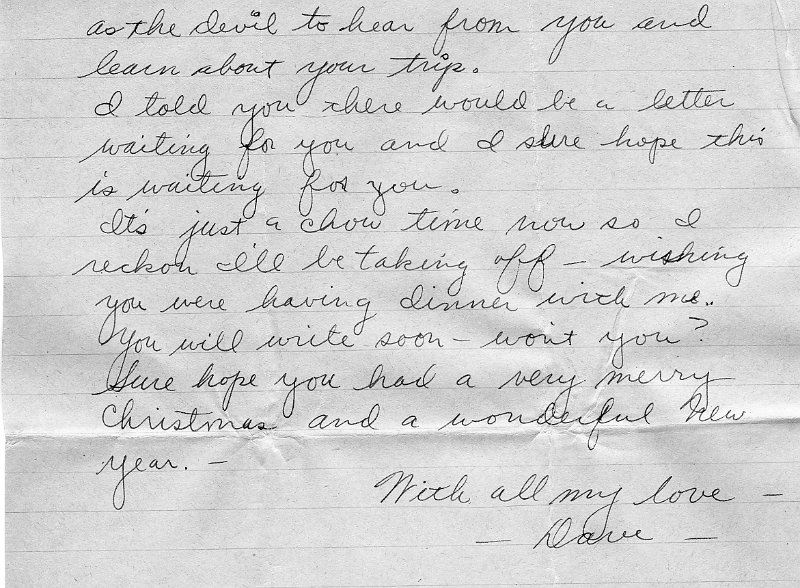 as the devil to hear from you and
learn about your trip.
I told you there would be a letter
waiting for you and I sure hope this
is waiting for you.
It's just a chow time now so I
reckon I'll be taking off – wishing
you were having dinner with me.
You will write soon – wont you?
Sure hope you had a very merry
Christmas and a wonderful New
year. –
With all my love –
– Dave –